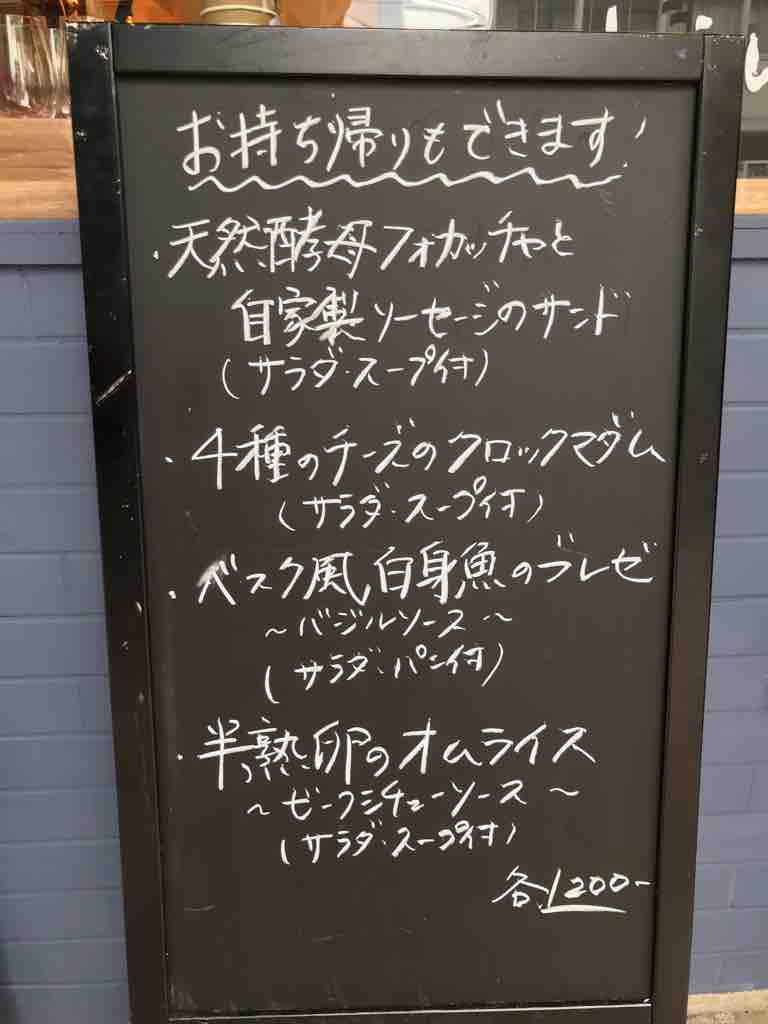 お持ち帰りもできます!
・天然酵母フォカッチャと
自家製ソーセージのサンド
(サラダ・スープ付)
・4種のチーズのクロックマダム
(サラダ・スープ付)
・バスク風白身魚のブレゼ
〜バジルソース〜
(サラダ・パン付)
・半熟卵のオムライス
〜ビーフシチューソース〜
(サラダ・スープ付)
各1200-